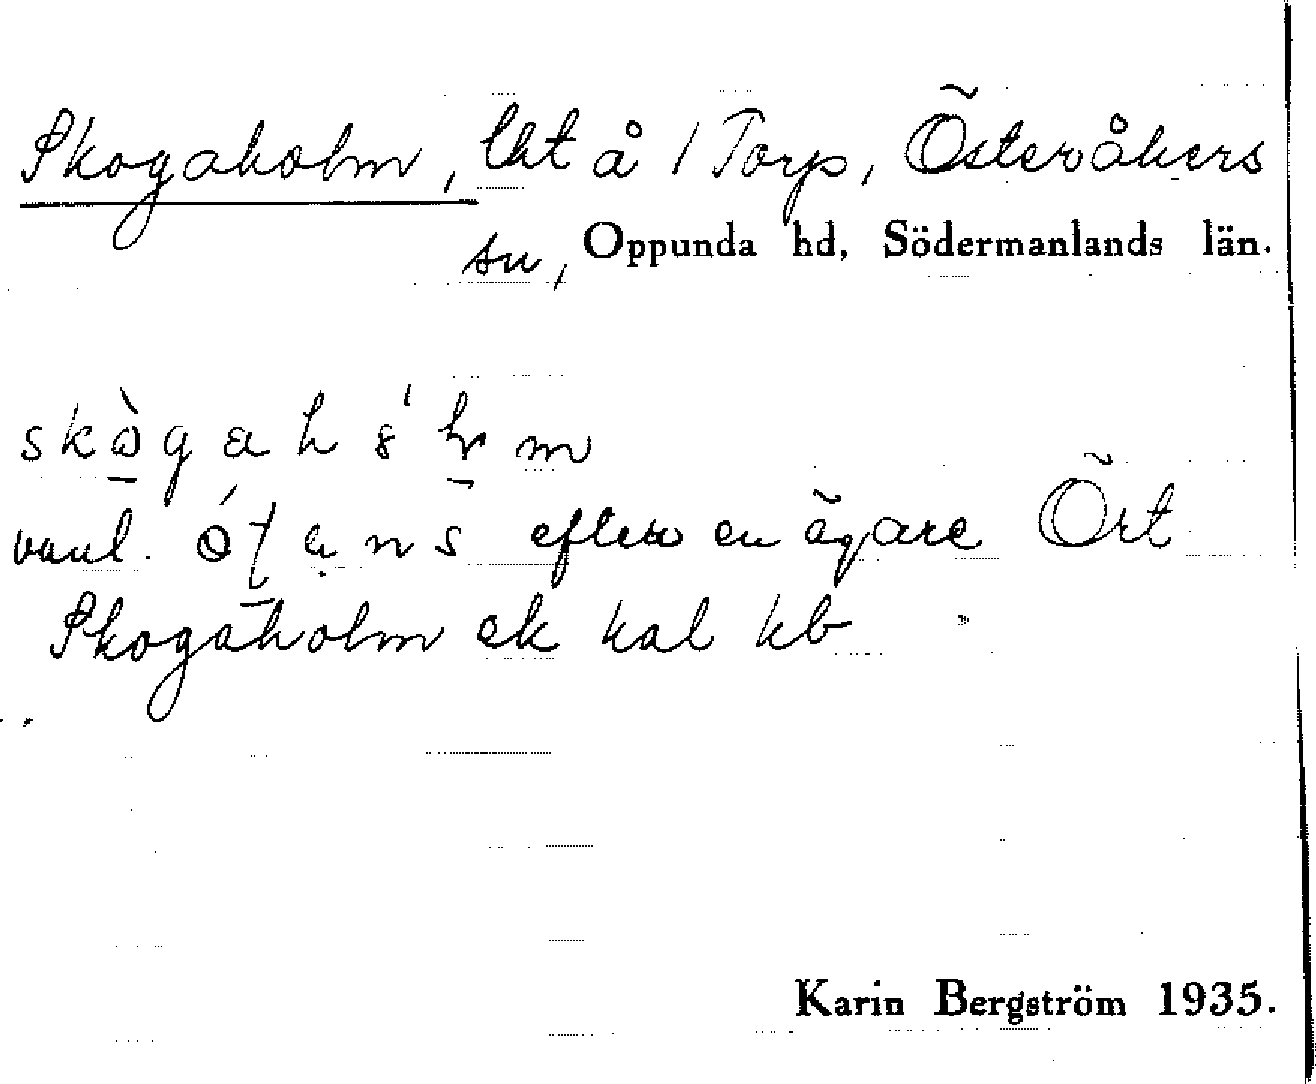 Skogaholm, lht å 1 Torp, Österåkers
sn, Oppunda hd, Södermanlands län.
vanl. efter en ägare Ört
Skogaholm ek kal kb
Karin Bergström 1935.